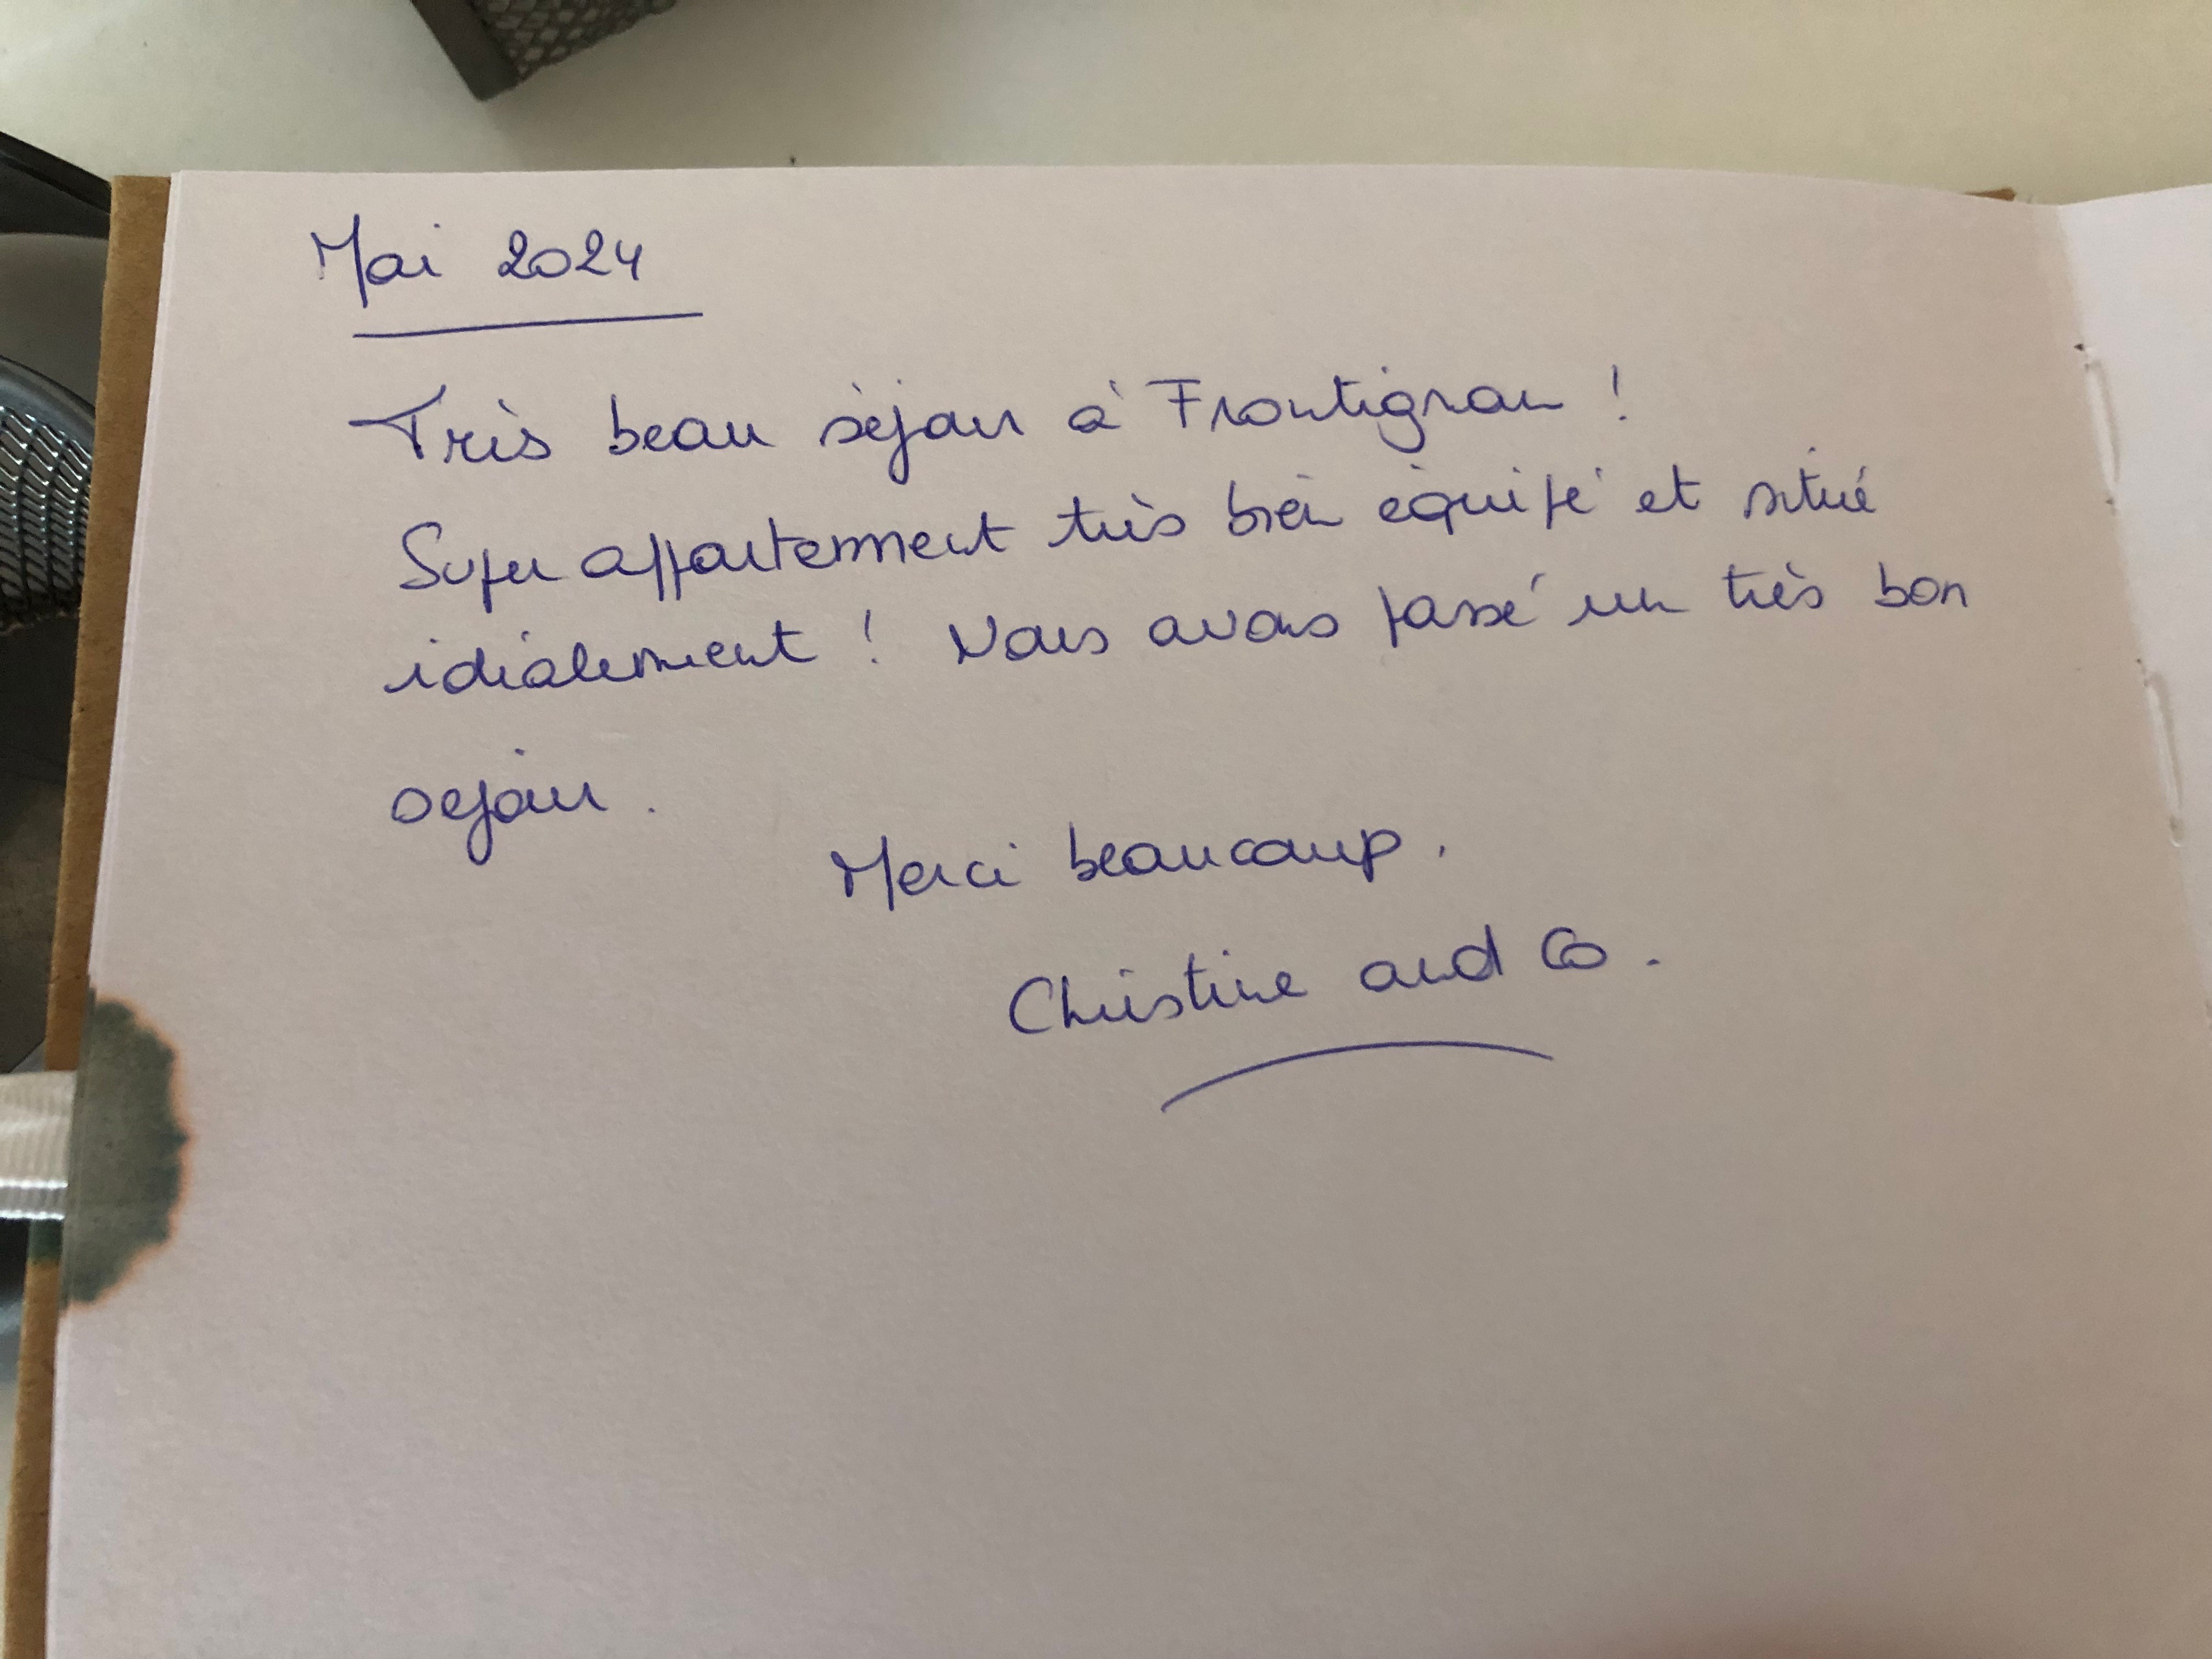 Mai 2024
Très beau séjour à Frontignan !
Super appartement très bien équipé et situé
idéalement ! Nous avons passé un très bon
séjour .
Merci beaucoup .
Christine and Co .